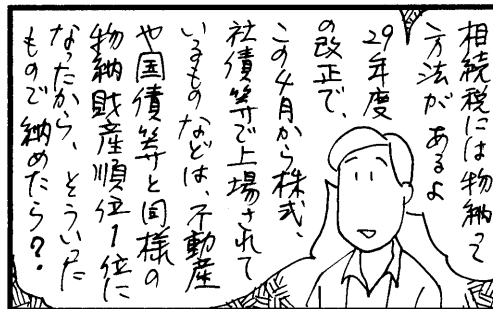 相続税には物納って
方法があるよ
29年度
の改正で、
この4月から株式、
社債等で上場されて
いるものなどは、不動産
や国債等と同様の
物納財産順位1位に
なったから、そういった
もので納めたら？